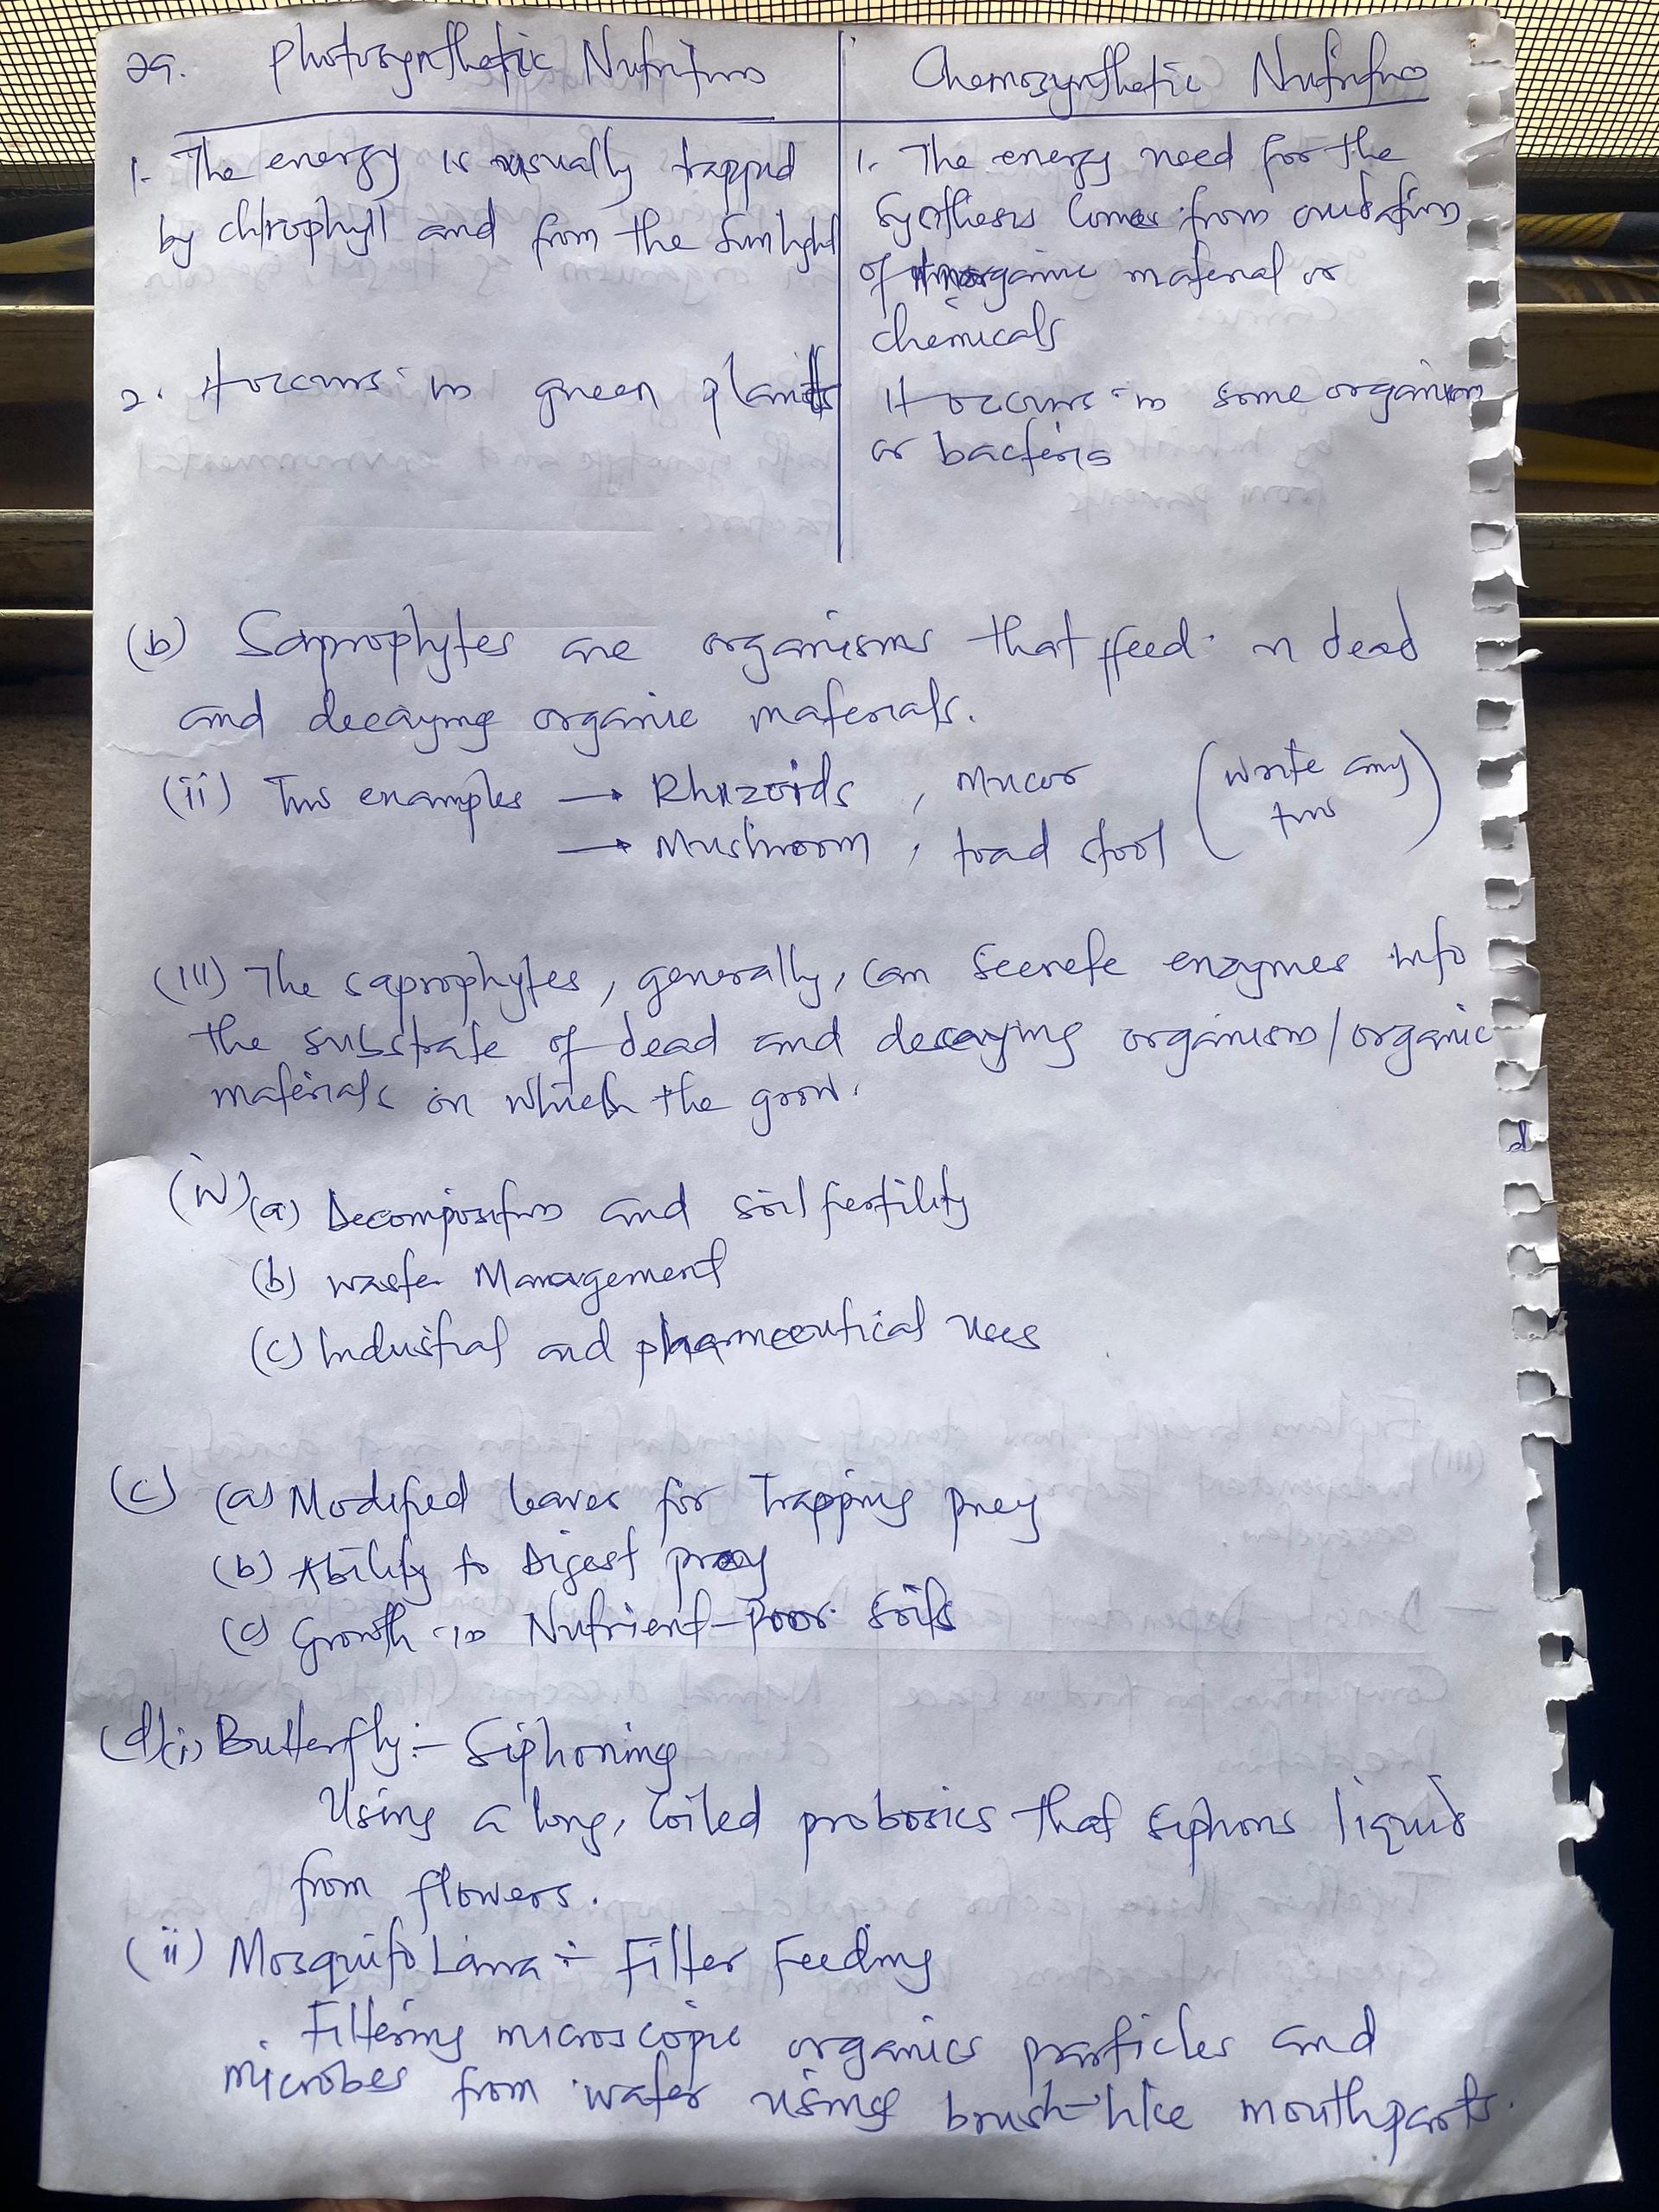 2a. Photosynthetic Nutrition | Chemosynthetic Nutrition
1. The energy is usually trapped
by chlrophyll and from the Sunlight
2. It occurs in green plants
1. The energy need for the
Synthesis Comes from oxidation
of inorganic material or
chemicals
It occurs in some organism
or bacteria
(b) Saprophytes are organisms that feed on dead
and decaying organic materials.
(ii) Two examples → Rhizoids, Mucor (write any
→ Mushroom, toad stool two)
(iii) The saprophytes, generally, can secrete enzymes into
the substrate of dead and decaying organism/organic
materials on which the grow.
(iv) (a) Decomposition and soil fertility
(b) waste Management
(c) Industrial and pharmceutical uses
(c) (a) Modified leaves for Trapping prey
(b) Ability to Digest prey
(c) Growth in Nutrient-Poor Soils
(d)(i) Butterfly:- Siphoning
Using a long, coiled probosics that siphons liquid
from flowers.
(ii) Mosquito Larva:- Filter Feeding
Filtering microscopic organics particles and
microbes from water using brush-like mouthparts.